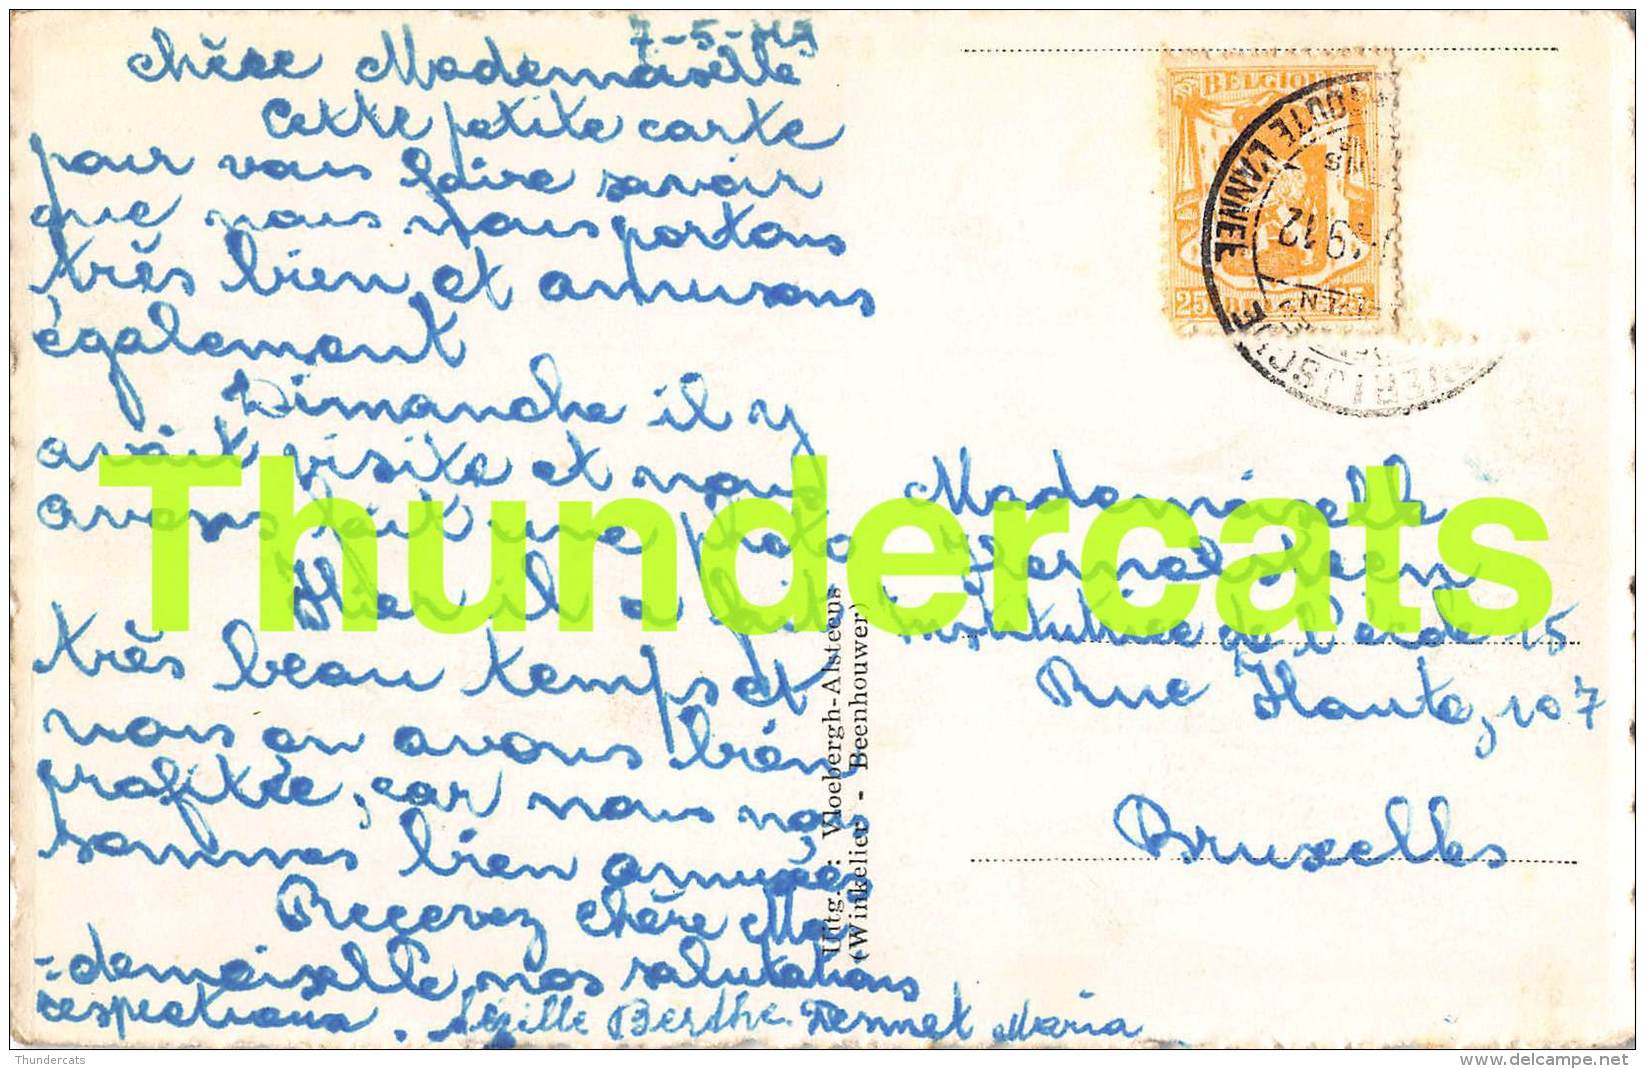 7-5-
chère Mademoiselle
Cette petite carte
pour vous faire savoir
que nous nous portons
très bien et amusons
également
Dimanche il y
avait visite et nous
avons fait une photo
Hier il a fait
très beau temps et
nous en avons bien
profitée, car nous nous
sommes bien amusées
Recevez chère Ma
-demoiselle nos salutations
respectueux. Berthe. Desmet Maria
Uitg.: Vloebergh-Alsteens
(Winkelier - Beenhouwer)
BELGIQUE
25
TOUTE L'ANNEE
19 12
Mademoiselle
Institutrice de l'école 15
Rue Haute, 107
Bruxelles
Thundercats
Thundercats
delcampe.net